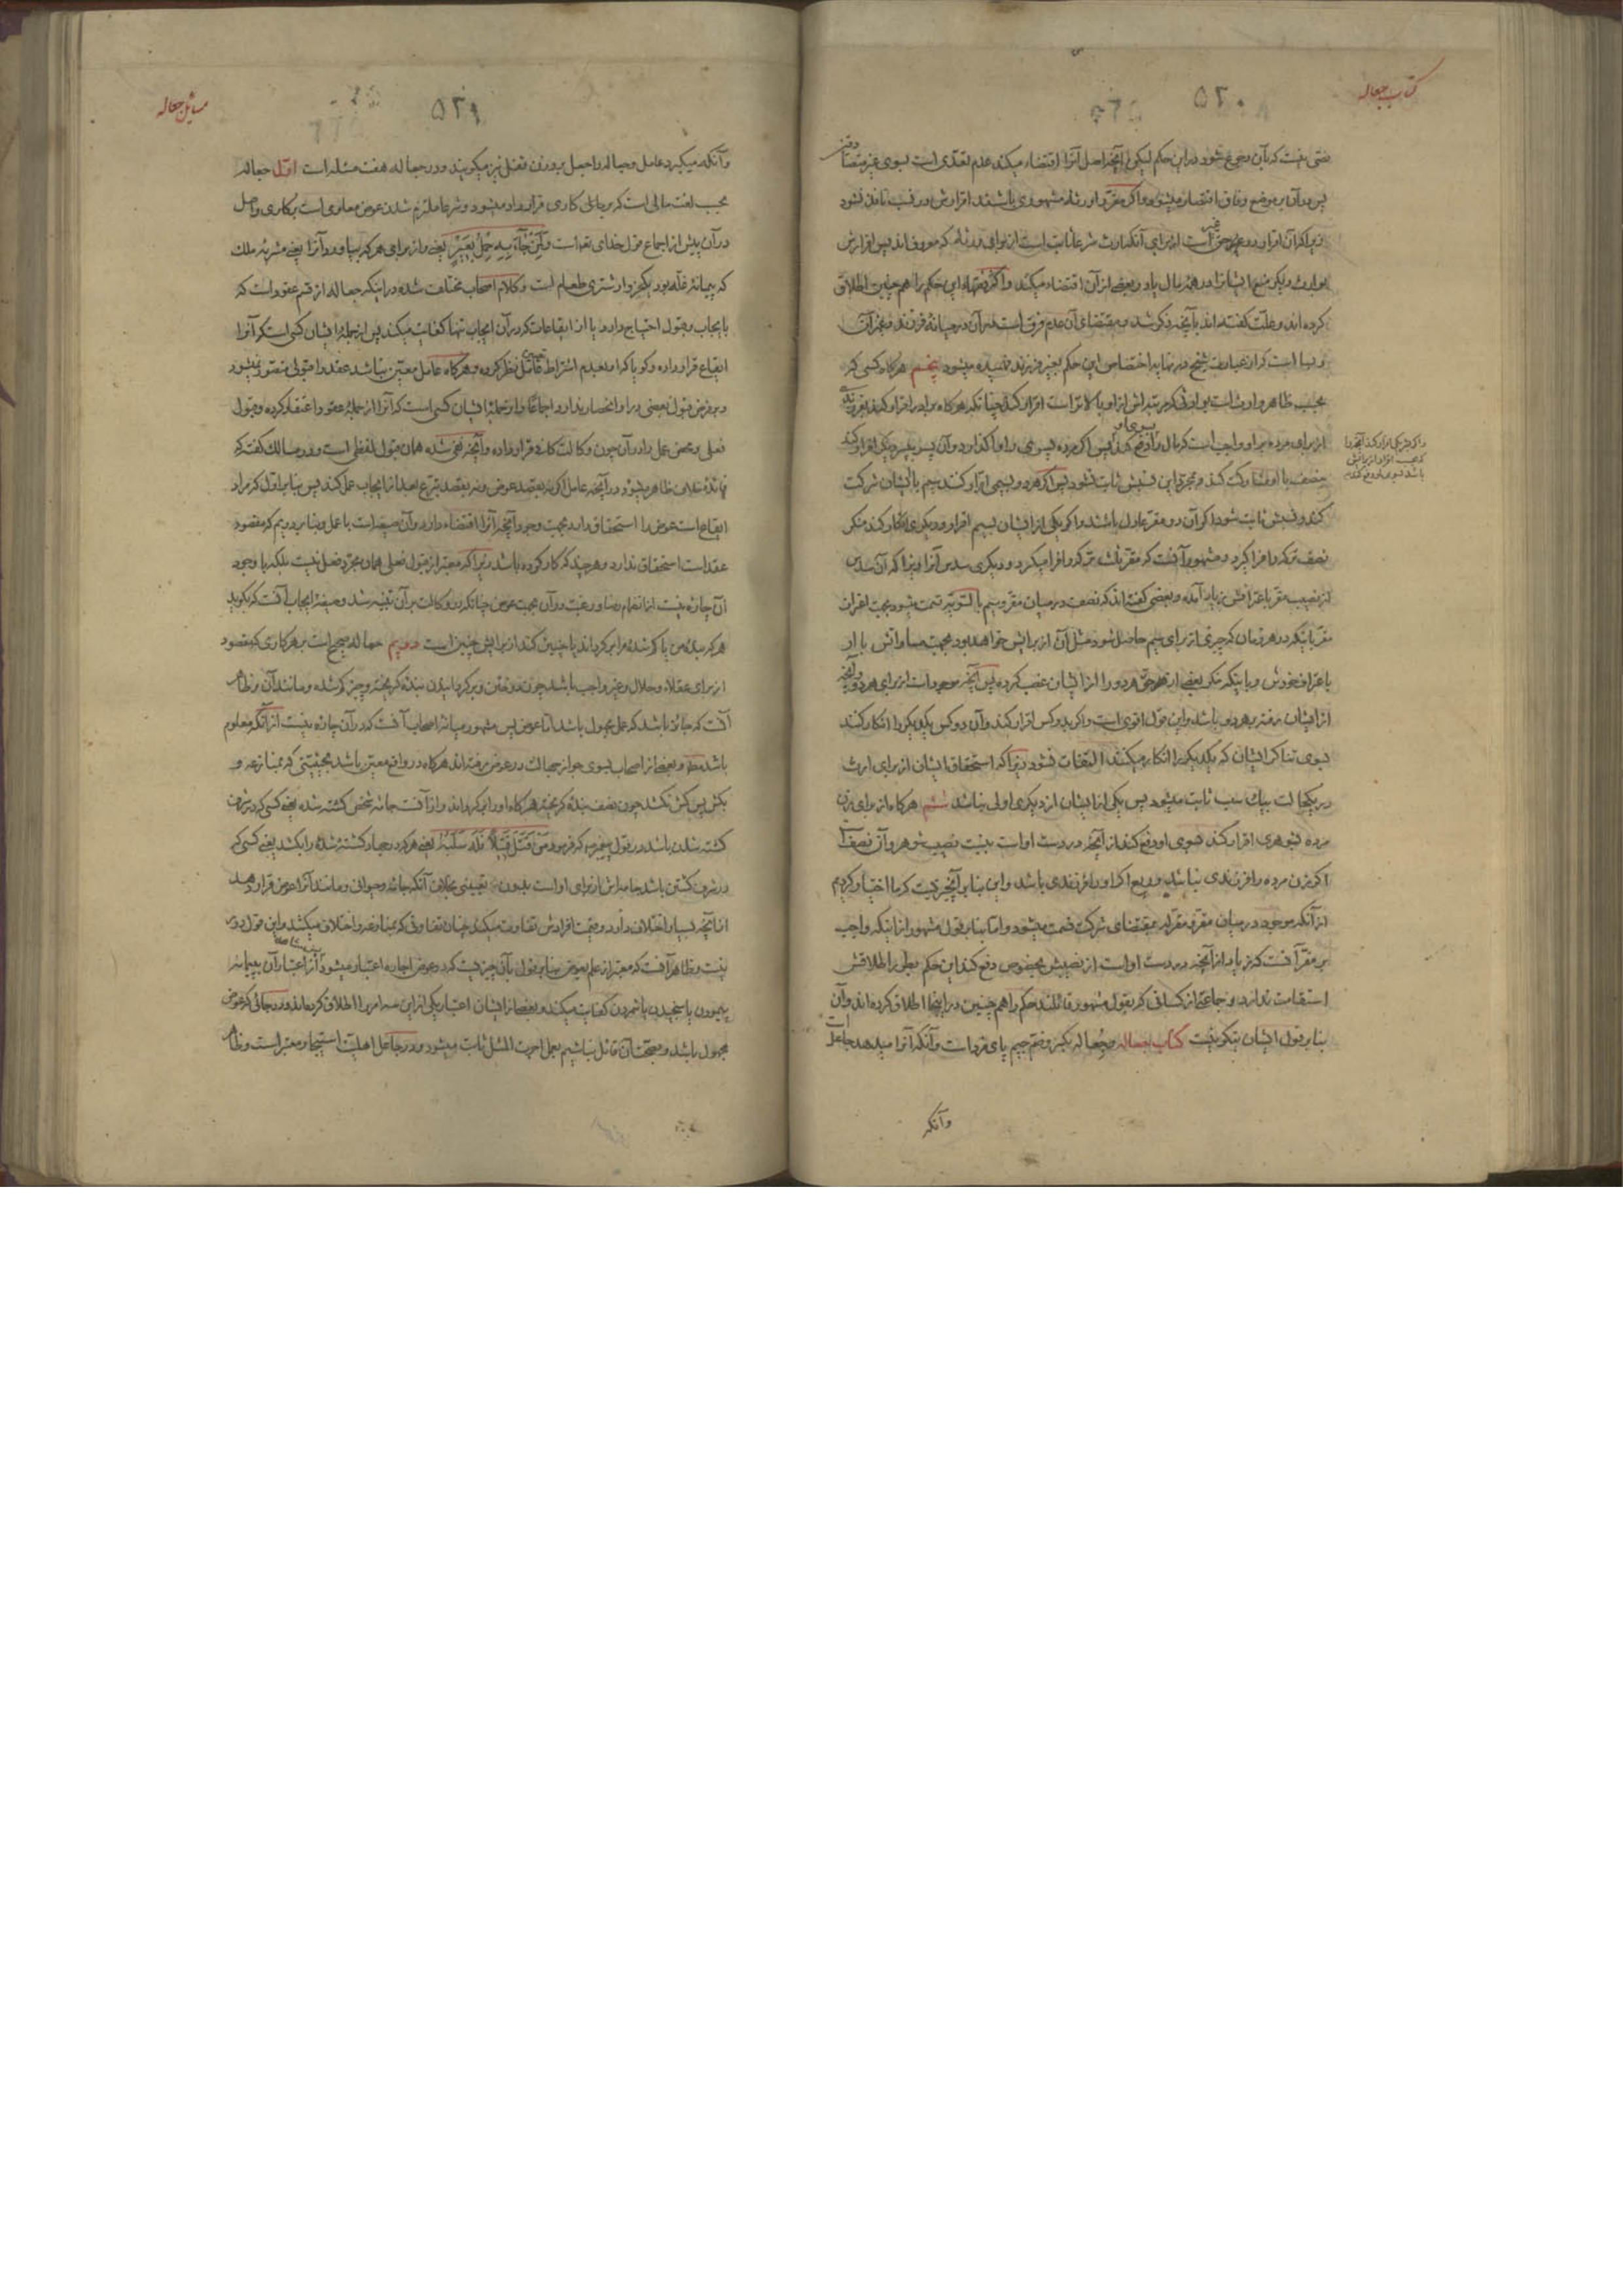 کتاب جعاله
۵۲۰
نصی نیست که بآن رجوع شود در این حکم لیکن آنچه اصل آنرا اقتضاء میکند عدم تعدی است بسوی غیر متصادقین
پس در آن بر موضع وفاق اقتصار میشود و اگر مقر را ورثهٔ مشهوری باشند اقرارش در نسب نافذ نشود
زیرا که آن اقرار در حق غیر است از برای آنکه ارث شرعا ثابت است از برای ورثهٔ که معروف‌اند پس اقرارش
بوارث دیگر منع ایشانرا در همه مال یا در بعضی از آن اقتضاء میکند و اکثر فقهاء این حکم را هم چنین اطلاق
کرده‌اند و علت گفته‌اند بآنچه ذکر شد و مقتضای آن عدم فرق است در آن در میانهٔ فرزند و غیر آن
و بسا است که از عبارت شیخ در نهایه اختصاص این حکم بغیر فرزند فهمیده میشود پنجم هرگاه کسی که
بحسب ظاهر وارث است بوارثی که مرتبه‌اش از او بالاتر است اقرار کند چنانکه هرگاه برادر اقرار کند بفرزندی
از برای مرده بر او واجب است که مال را بسوی او دفع کند پس اگر مرده پسری را واگذارد و آن پسر به پسر دیگر اقرار کند
بنصف با او مشارکت کند و بمجرد این نسبش ثابت نشود پس اگر هر دو بسیمی اقرار کنند سیم با ایشان شرکت
کند و نسبش ثابت شود اگر آن دو مقر عادل باشند و اگر یکی از ایشان بسیم اقرار و دیگری انکار کند منکر
نصف ترکه را فرا گیرد و مشهور آنست که مقر ثلث ترکه را فرا میگیرد و دیگری سدس آنرا زیرا که آن سدس
از نصیب مقر باعترافش زیاد آمده و بعضی گفته‌اند که نصف در میان مقر و سیم بالسویه قسمت میشود بجهت اقرار
مقر باینکه در هر زمان که چیزی از برای سیم حاصل شود مثل آن از برایش خواهد بود بجهت مساواتش با او
باعتراف خودش و باینکه منکر بعضی از حق هر دو را از ایشان غصب کرده پس آنچه موجود است از برای هر دو و آنچه
از ایشان رفته بر هر دو باشد و این قول اقوی است و اگر بدو کس اقرار کند و آن دو کس یکدیگر را انکار کنند
بسوی تناکر ایشان که یکدیگر را انکار میکنند التفات نشود زیرا که استحقاق ایشان از برای ارث
در یکحالت بیک سبب ثابت میشود پس یکی از ایشان از دیگری اولی نباشد ششم هرگاه از برای زن
مرده بشوهری اقرار کند بسوی او دفع کند از آنچه در دست او است بنسبت نصیب شوهر و آن نصف است
اگر زن مرده را فرزندی نباشد و ربع اگر او را فرزندی باشد و این بنا بر آنچیزیست که ما اختیار کردیم
از آنکه موجود در میان مقر و مقرله بمقتضای شرکت قسمت میشود و اما بنا بر قول مشهور از اینکه واجب
بر مقر آنست که زیاد از آنچه در دست او است از نصیبش بخصوص دفع کند این حکم بطور اطلاقش
استقامت ندارد و جماعتی از کسانی که بقول مشهور قائلند حکم را هم چنین در اینجا اطلاق کرده‌اند و آن
بنا بر قول ایشان نیکو نیست کتاب جعاله و جعاله بکسر و فتح جیم پای مزد است و آنکه آنرا میدهد جاعل است
وآنکه
مسائل جعاله
۵۲۱
و آنکه میگیرد عامل و جعاله را جعل بر وزن قفل نیز میگویند و در جعاله هفت مسئله است اول جعاله
بحسب لغت مالی است که بر جای کاری قرار داده میشود و شرعا ملتزم شدن عوض معلومی است بر کاری و اصل
در آن پیش از اجماع قول خدای تعه است ولمن جاء به حمل بعیر یعنی و از برای هر که بیاورد آنرا یعنی مشربهٔ ملک
که پیمانهٔ غله بود یکخروار شتری طعام است و کلام اصحاب مختلف شده در اینکه جعاله از قسم عقود است که
بایجاب و قبول احتیاج دارد یا از ایقاعات که در آن ایجاب تنها کفایت میکند پس از جملهٔ ایشان کسی است که آنرا
ایقاع قرار داده و گویا که او بعدم اشتراط تعیین قابل نظر کرده و هرگاه عامل معین نباشد عقد را قبولی متصور نمیشود
و بر فرض قبول بعضی در او انحصار ندارد اجماعا و از جملهٔ ایشان کسی است که آنرا از جملهٔ عقود اعتقاد کرده و قبول
فعلی و محض عمل را در آن چون وکالت کافی قرار داده و آنچه نفی شده همان قبول لفظی است و در مسالک گفته که
فائدهٔ خلاف ظاهر میشود در آنچه عامل اگر نه بقصد عوض و نه بقصد تبرع بعد از ایجاب عمل کند پس بنا بر اول که مراد
ایقاع است عوض را استحقاق دارد بجهت وجود آنچه آنرا اقتضاء دارد و آن صیغه است با عمل و بنا بر دویم که مقصود
عقد است استحقاق ندارد و هر چند که کار کرده باشد زیرا که معتبر از قبول فعلی همان مجرد فعل نیست بلکه با وجود
آن چاره نیست از انضمام رضا و رغبت در آن بجهت عوض چنانکه در وکالت بر آن تنبیه شد و صیغهٔ ایجاب آنست که بگوید
هر که بندهٔ من یا گم شدهٔ مرا برگرداند یا چنین کند از برایش چنین است دویم جعاله صحیح است بر هر کاری که مقصود
از برای عقلاء و حلال و غیر واجب باشد چون دوختن و برگردانیدن بندهٔ گریخته و چیز گم شده و مانند آن و ظاهر
آنست که جائز باشد که عمل مجهول باشد اما عوض پس مشهور میانهٔ اصحاب آنست که در آن چاره نیست از آنکه معلوم
باشد مطه و بعضی از اصحاب بسوی جواز جهالت در عوض رفته‌اند هرگاه در واقع معین باشد بحیثیتی که بمنازعه و
بکش پس کش نکشد چون نصف بندهٔ گریخته هرگاه او را برگرداند و از آنست جامهٔ شخص کشته شده یعنی کسی که در شرف
کشته شدن باشد در قول پیغمبر ص که فرمود من قتل قتیلا فله سلبه یعنی هر که در جهاد کشته شدهٔ را بکشد یعنی کسی که
در شرف کشتن باشد جامه‌اش از برای او است بدون تعیینی بخلاف آنکه جامه و حیوانی و مانند آنرا عوض قرار دهد
اما آنچه بسیار اختلاف دارد و قیمت افرادش تفاوت میکند چنان تفاوتی که بمنازعه و اختلاف میکشد و این قول دور
نیست و ظاهر آنست که معتبر از علم بعوض بنا بر قول بآن چیزیست که در عوض اجاره اعتبار میشود از اعتبار آن به پیمانه
پیمودن یا سنجیدن یا شمردن کفایت میکند و بعضی از ایشان اعتبار یکی از این سه امر را اطلاق کرده‌اند و در جائی که عوض
مجهول باشد و بصحت آن قائل نباشیم بعمل اجرت المثل ثابت میشود و در جاعل اهلیت استیجار معتبر است و ظاهر